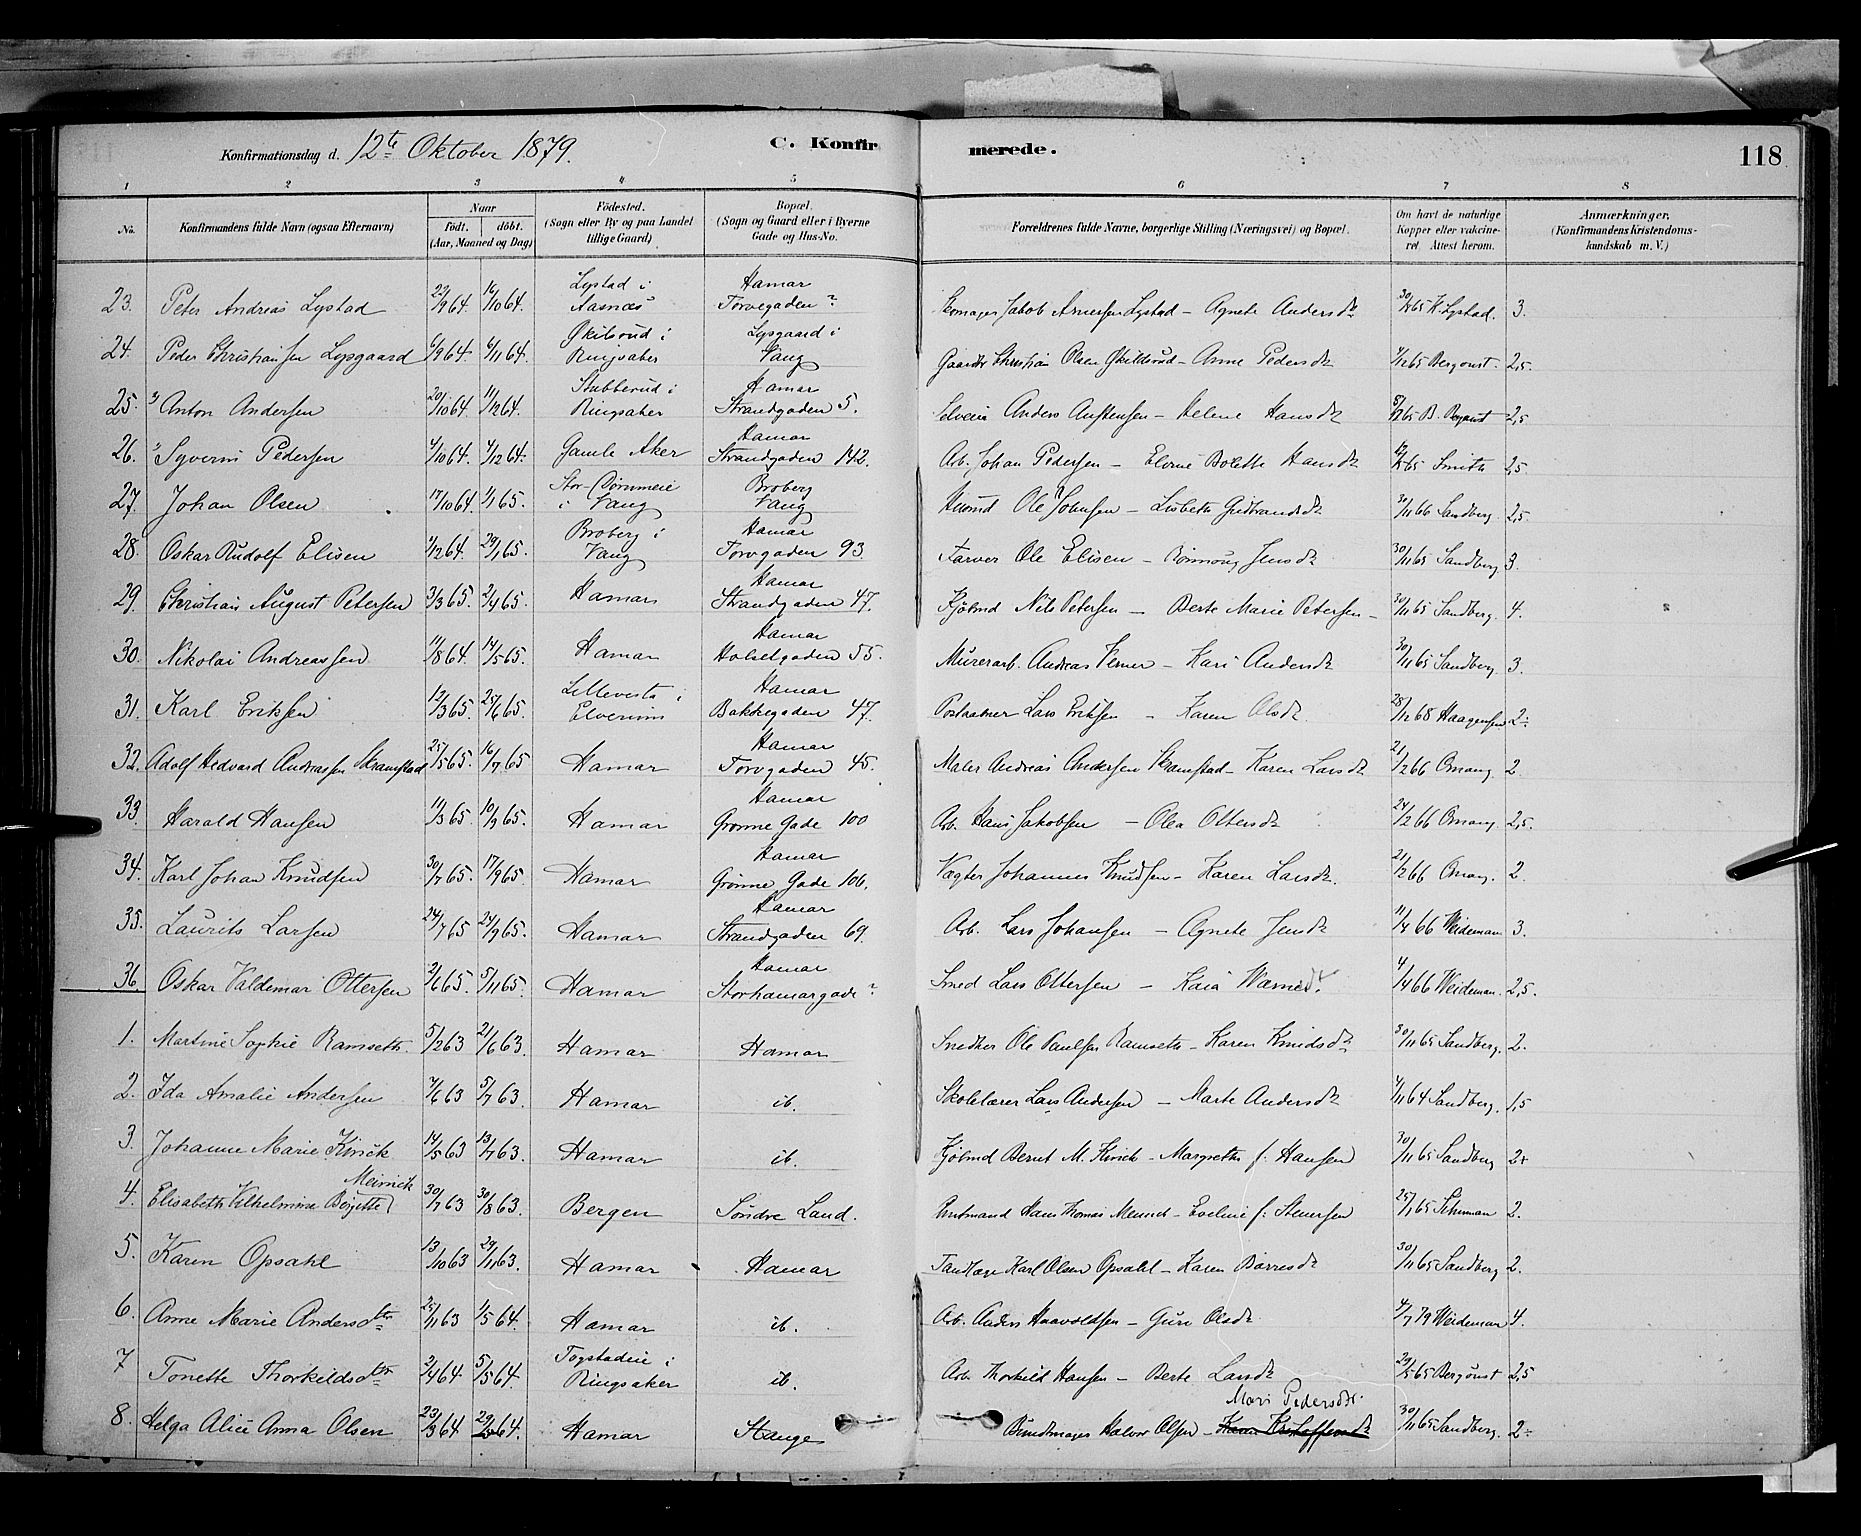 Konfirmationsdag d. 12te Oktober 1879.
C. Konfirmerede.
118
1 2 3 4 5 6 7 8
No.
Konfirmandens fulde Navn (ogsaa Efternavn)
Naar
født. døbt.
(Aar, Maaned og Dag)
Fødested.
(Sogn eller By og paa Landet
tillige Gaard)
Bopæl.
(Sogn og Gaard eller i Byerne
Gade og Hus-No.
Forældrenes fulde Navne, borgerlige Stilling (Næringsvei) og Bopæl.
Om havt de naturlige
Kopper eller vakcineret
Attest herom.
Anmærkninger,
(Konfirmandens Kristendomskundskab
m. V.)
23. Peter Andreas Lystad 22/9 64. 16/10 64. Lystad i Aasnæs Hamar Torvegaden ? Skomager Jakob Arnesen Lystad – Agnete Andersdtr 30/ 65 K. Lystad. 3.
24. Peder Christiansen Lysgaard 6/9 64. 6/11 64. Skilsrud i Ringsaker Lysgaard i Vang Christian Olsen Skildsrud – Anne Pedersdt /12 65 Bergqust. 2,5.
25. Anton Andersen 20/10 64. 11/12 64. Stubberud i Ringsaker Hamar Strandgaden 5. Selveier Anders Austensen – Helene Hansdt 65 B. Bergqust 2,5
26. Syverin Pedersen 4/10 64. 4/12 64. Gamle Aker Hamar Strandgaden 142. Arb. Johan Pedersen – Bolette Hansdt 65 Smith 2,5
27. Johan Olsen 17/10 64. 1/1 65. i Vang Broberg Vang Husmd Ole Johnsen – Lisbeth Gudbrandsdt 30/11 66 Sandberg. 2,5.
28. Oskar Rudolf Elisen 1/12 64. 29/1 65. Broberg i Vang Hamar Torvgaden 93. Farver Ole Elisen – Rønnoug Jensdt 30/11 65 Sandberg 3.
29. Christian August Petersen 3/3 65. 2/4 65. Hamar Hamar Strandgaden 47. Kjøbmd Nils Petersen – Berte Marie Petersen – 30/11 65 Sandberg 4.
30. Nikolai Andreassen 11/8 64. 14/5 65. Hamar Hamar Holsetgaden 55. Murerarb. Andreas – Kari Andersdt 30/11 65 Sandberg 3.
31. Karl Eriksen 12/3 65. 25/6 65. Lillevesta i Elverum Hamar Bakkegaden 47. Lars Eriksen – Karen Olsdt. 28/12 68 Haagensen 2÷
32. Adolf Hedvard Andreassen Skramstad 25/5 65. 16/7 65 Hamar Hamar Torvgaden 45. Maler Andreas Andersen Skramstad – Karen Larsdt 21/2 66 Omang. 2
33. Harald Hansen 11/3 65. 10/9 65. Hamar Hamar Grønne Gade 100 Arb. Hans Jakobsen – Olea Ottersdt 24/2 66 Omang. 2,5.
34. Karl Johan Knudsen 30/7 65. 17/9 65. Hamar Hamar Grønne Gade 106. Vægter Johannes Knudsen – Karen Larsdt. 21/2 66 Omang. 2.
35. Laurits Larsen 24/7 65 24/9 65. Hamar Hamar Strandgaden 69. Arb. Lars Johansen – Agnete Jensdt 11/4 66 Weideman 3.
36. Oskar Valdemar Ottersen 2/6 65. 5/11 65. Hamar Hamar Storhamargade ? Smed Lars Ottersen – Kaia 4/4 66 Weideman. 2,5.
1. Martine Sophie Ramseth. 5/2 63 21/6 63. Hamar Hamar Snedker Ole Paulsen Ramseth – Karen Knudsdt 30/11 65 Sandberg. 2.
2. Ida Amalie Andersen 7/6 63 5/7 63. Hamar ib. Skolelærer Lars Andersen – Marte Andersdt 4/11 64 Sandberg. 1,5
3. Johanne Marie Kinck 14/5 63 13/7 63. Hamar ib. Kjøbmd Bernt M. Kinck – Margrethe f. Hansen 30/11 65 Sandberg 2÷
4. Elisabeth Vilhelmine Birgitte Meinich 30/7 63 30/8 63. Bergen Søndre Land. Amtmand Hans Thomas Meinich – Eveline f. 25/1 65 Schuman 2.
5. Karen Opsahl 13/10 63 29/11 63. Hamar Hamar Tandlæge Karl Olsen Opsahl – Karen Børresdt 30/11 65 Sandberg 2.
6. Anne Marie Andersdtr 25/11 63 1/5 64. Hamar ib. Arb. Anders Haavoldsen – Guri Olsdt. 4/7 79 Weideman 4.
7 Tonette Thorkildsdtr 2/4 64 5/5 64. Togstadeie i Ringsaker ib. Arb. Thorkild Hansen – Berte Larsdt 29/5 65 Bergqust 2,5
8. Helga Alice Anna Olsen 23/3 64 29/5 64. Hamar Stange Buntmager Halvor Olsen – Karen Kristoffersdt Mari Pedersdt. 30/11 65 Sandberg. 2÷